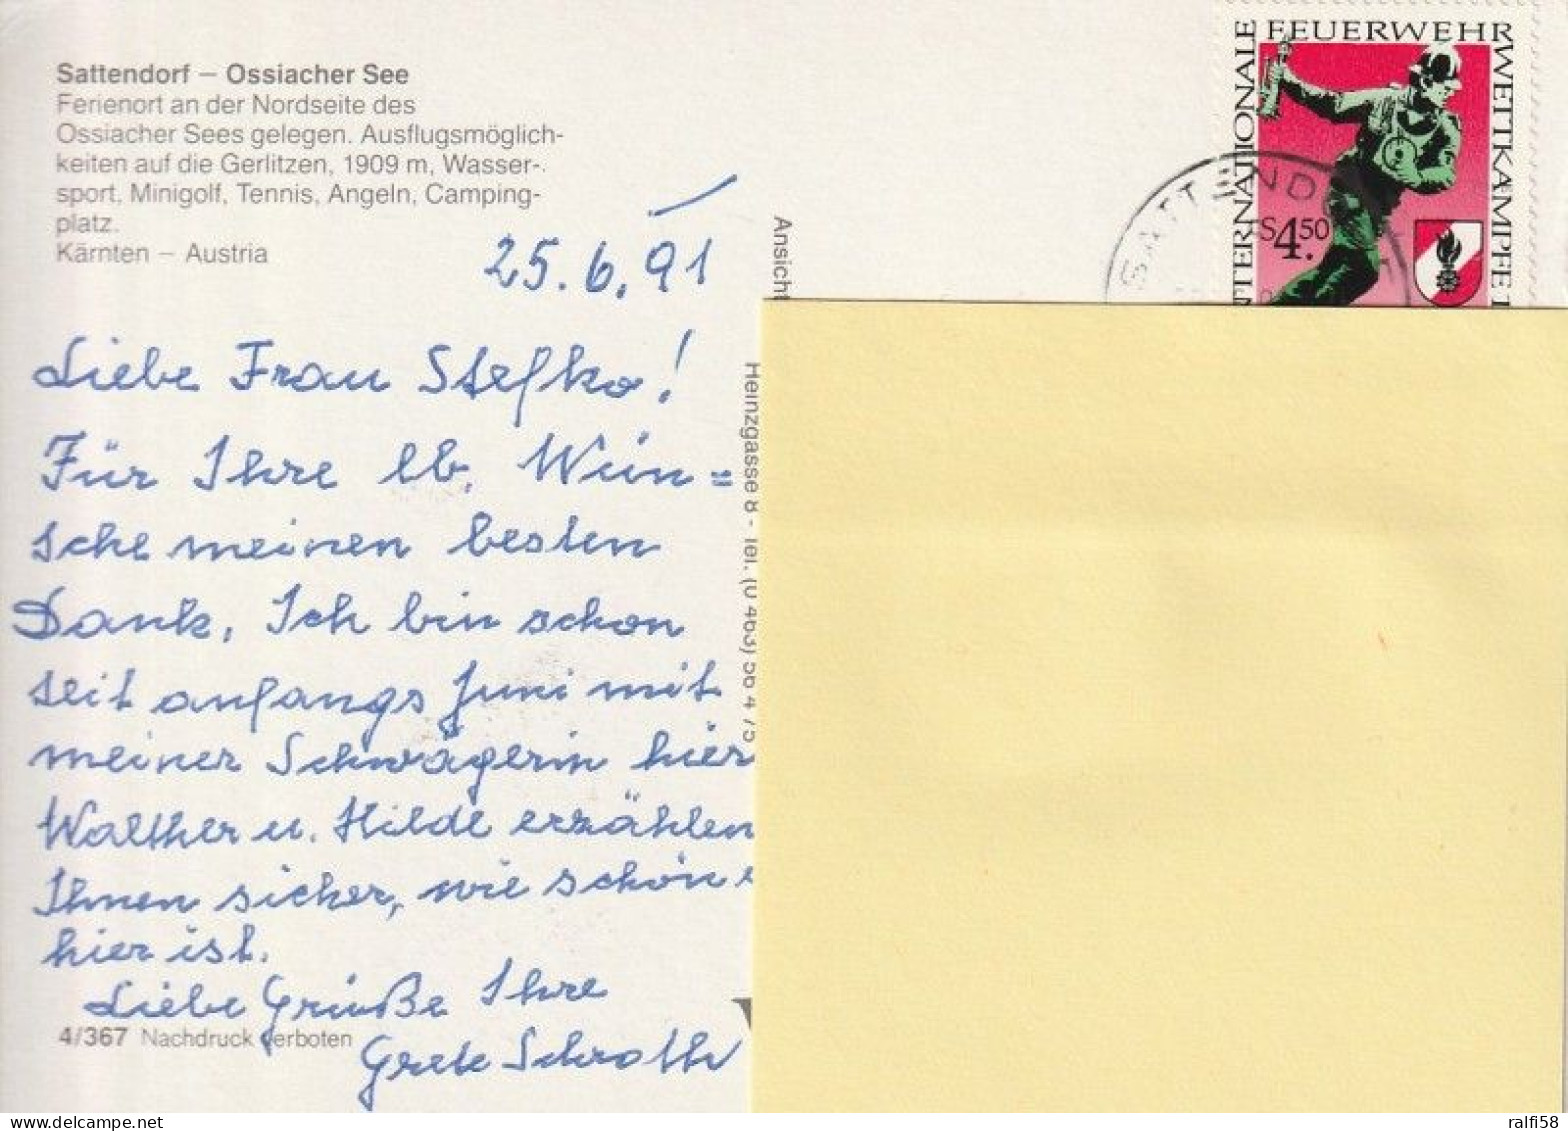 Sattendorf – Ossiacher See
Ferienort an der Nordseite des
Ossiacher Sees gelegen. Ausflugsmöglich-
keiten auf die Gerlitzen, 1909 m, Wasser-
sport. Minigolf, Tennis, Angeln, Camping-
platz.
Kärnten – Austria
25.6.91
Liebe Frau Stefko!
Für Ihre lb. Wün=
sche meinen besten
Dank. Ich bin schon
seit anfangs Juni mit
meiner Schwägerin hier
Walther u. Hilde erzählen
Ihnen sicher, wie schön
hier ist.
Liebe Grüße Ihre
Grete Schroth
4/367 Nachdruck verboten
Ansicht
Heinzgasse 8 - Tel. (0 463) 56 4 75
INTERNATIONALE FEUERWEHRWETTKÄMPFE
S4.50
SATTENDORF
delcampe.net
ralfi58